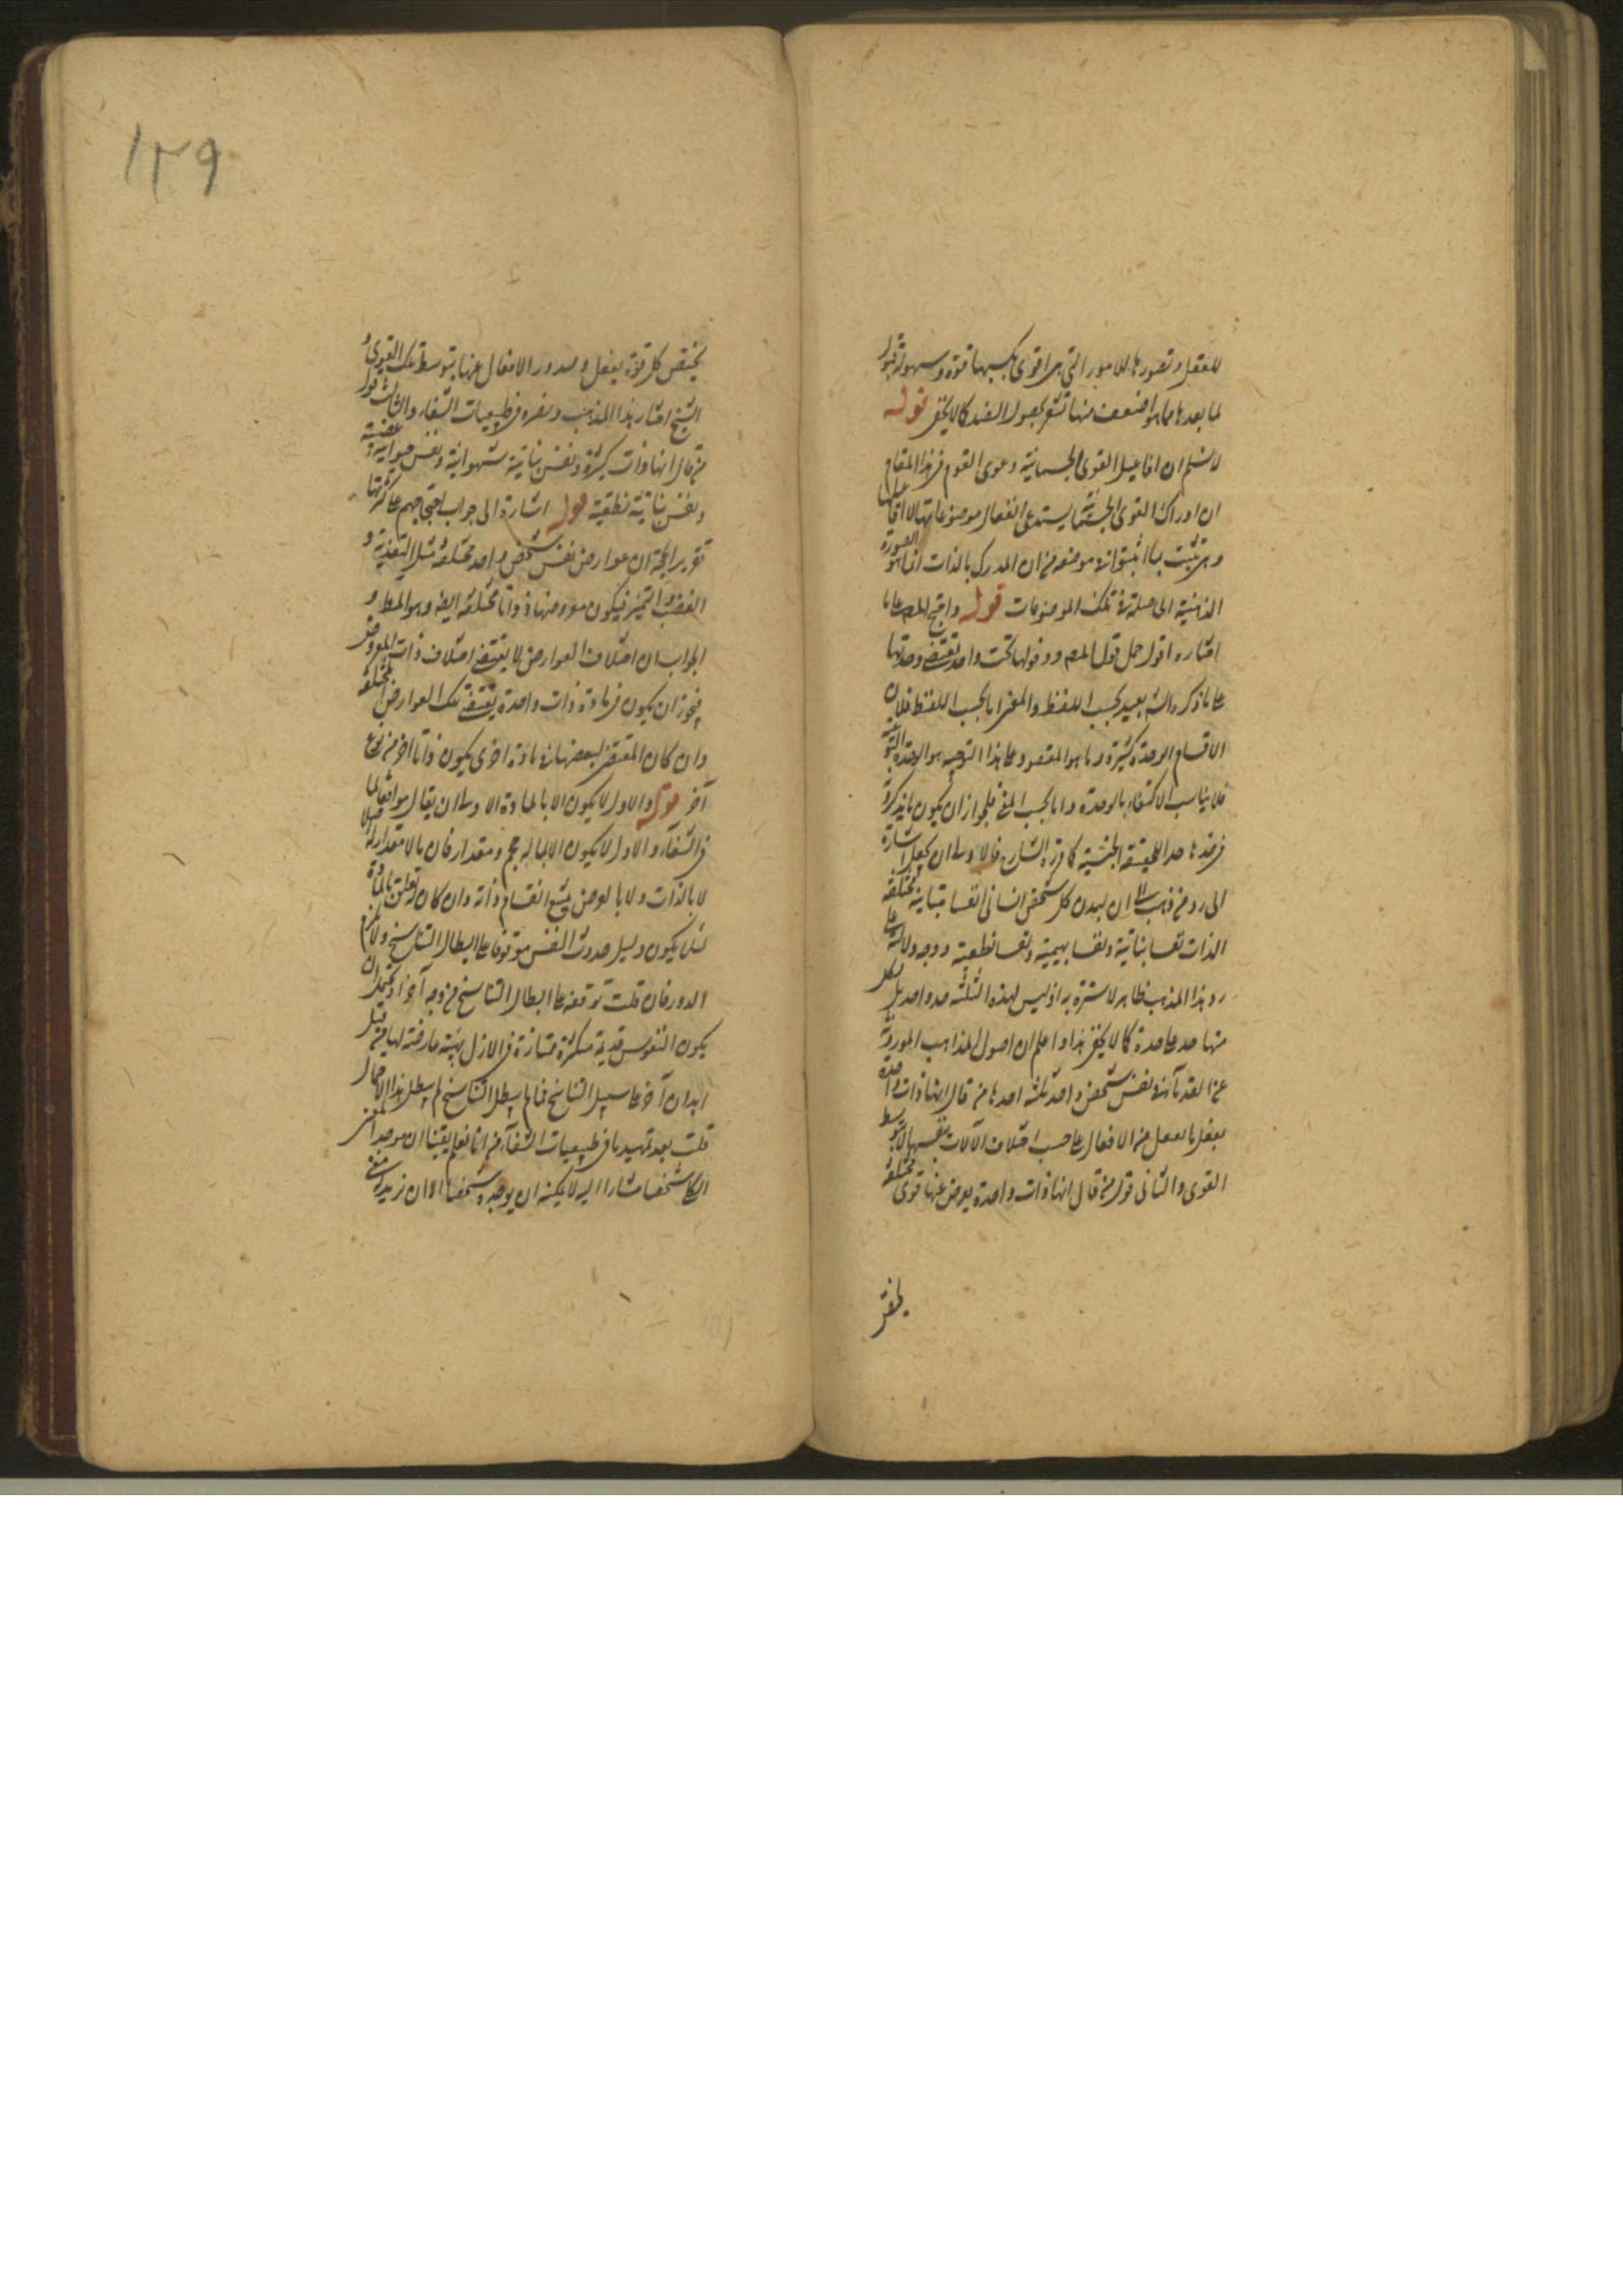 للعقل وتصورها للامور التي هي اقوى يكسبها قوة وسهولة قبول
لما بعدها مما هو اضعف منها تشعر بحصول الضد كما لا يخفى قوله
لا نسلم ان افاعيل القوى الجسمانية دعوى القوم في هذا المقام
ان ادراك القوى الجسمانية يستدعى انفعال موضوعاتها لا افاعيلها
وهى تثبت بما اثبتوا في موضعه من ان المدرك بالذات انما هو الصورة
الذهنية الحاصلة في تلك الموضوعات قوله واحتج المص على ما
اختاره اقول حمل قول المص ودخولها تحت واحد يقتضى وحدتها
على ما ذكره الش بعيد بحسب اللفظ والمعنى اما بحسب اللفظ فلان
الاقسام الوحدة كثيرة وما هو المقصود على هذا التوجيه هو الوحدة النوعية
فلا يناسب الاكتفاء بالوحدة واما بحسب المعنى فلجواز ان يكون ما يذكر في
فرضه حدا للحقيقة الجنسية كما قرره الشارح فالاولى ان يجعل اشارة
الى رد من ذهب الى ان لبدن كل شخص انسانى انفسا متباينة مختلفة
الذات نفسا نباتية ونفسا بهيمية ونفسا نطقية ووجه دلالته على
رد هذا المذهب ظاهر لا سترة به اذ ليس لهذه الثلثة حد واحد بل لكل
منها حد على حدة كما لا يخفى هذا واعلم ان اصول المذاهب الموروثة
عن القدماء في نفس شخص واحد ثلثة احدها من قال انها ذات واحدة
يفعل ما يفعل من الافعال على حسب اختلاف الآلات بنفسها لا بتوسط
القوى والثانى قول من قال انها ذات واحدة يعرض عنها قوى مختلفة
يختص
١٢٩
يختص كل قوة بفعل وصدور الافعال عنها بتوسط تلك القوى و
الشيخ اختار هذا المذهب ونصره في طبيعيات الشفاء والثالث قول
من قال انها ذات كثيرة ونفس نباتية شهوانية ونفس حيوانية غضبية
ونفس نباتية نطقية قوله اشارة الى جواب احتجاجهم على كثرتها
تقرير الحجة ان عوارض نفس شخص واحد مختلفة مثل التغذية و
الغضب والتميز فيكون معروضها ذواتا مختلفة ايضا وهو المط و
الجواب ان اختلاف العوارض لا يقتضى اختلاف ذات المعروض
فيجوز ان يكون في مادة ذات واحدة يقتضى تلك العوارض المختلفة
وان كان المقتضى لبعضها في مادة اخرى يكون ذاتا اخر من نوع
آخر قوله والاول لا يكون الا بالمادة الاولى ان يقال موافقا لما
في الشفاء والاول لا يكون الا لما له حجم ومقدار فان ما لا مقدار له اصلا
لا بالذات ولا بالعرض يمتنع انقسام ذاته وان كان له تعلق بالمادة
لئلا يكون دليل حدوث النفس موقوفا على ابطال التناسخ ولا يلزم
الدور فان قلت توقفه على ابطال التناسخ من وجه آخر اذ يحتمل ان
يكون النفوس قديمة متكثرة متمايزة في الازل بهيئة عارضة لها من قبل
ابدان آخر على سبيل التناسخ فما لم يبطل التناسخ لم يبطل هذا الاحتمال
قلت بعد تمهيد ما في طبيعيات الشفاء من انا نعلم يقينا ان موجد النفس
الكا شخصا مشارا اليه لا يمكنه ان يوجده شخصا او ان نزيد له معنى